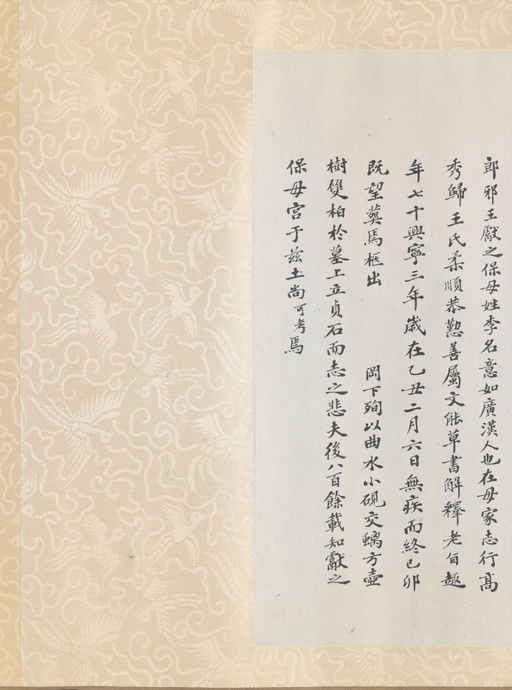 郎邪王獻之保母姓李名意如廣漢人也在母家志行高
秀歸王氏柔順恭懃善屬文能草書解釋老旨趣
年七十興寧三年歲在乙丑二月六日無疾而終已卯
既望葬焉柩出 岡下殉以曲水小硯交螭方壺
樹雙柏於墓上立貞石而志之悲夫後八百餘載知獻之
保母宮于兹土尚可考焉